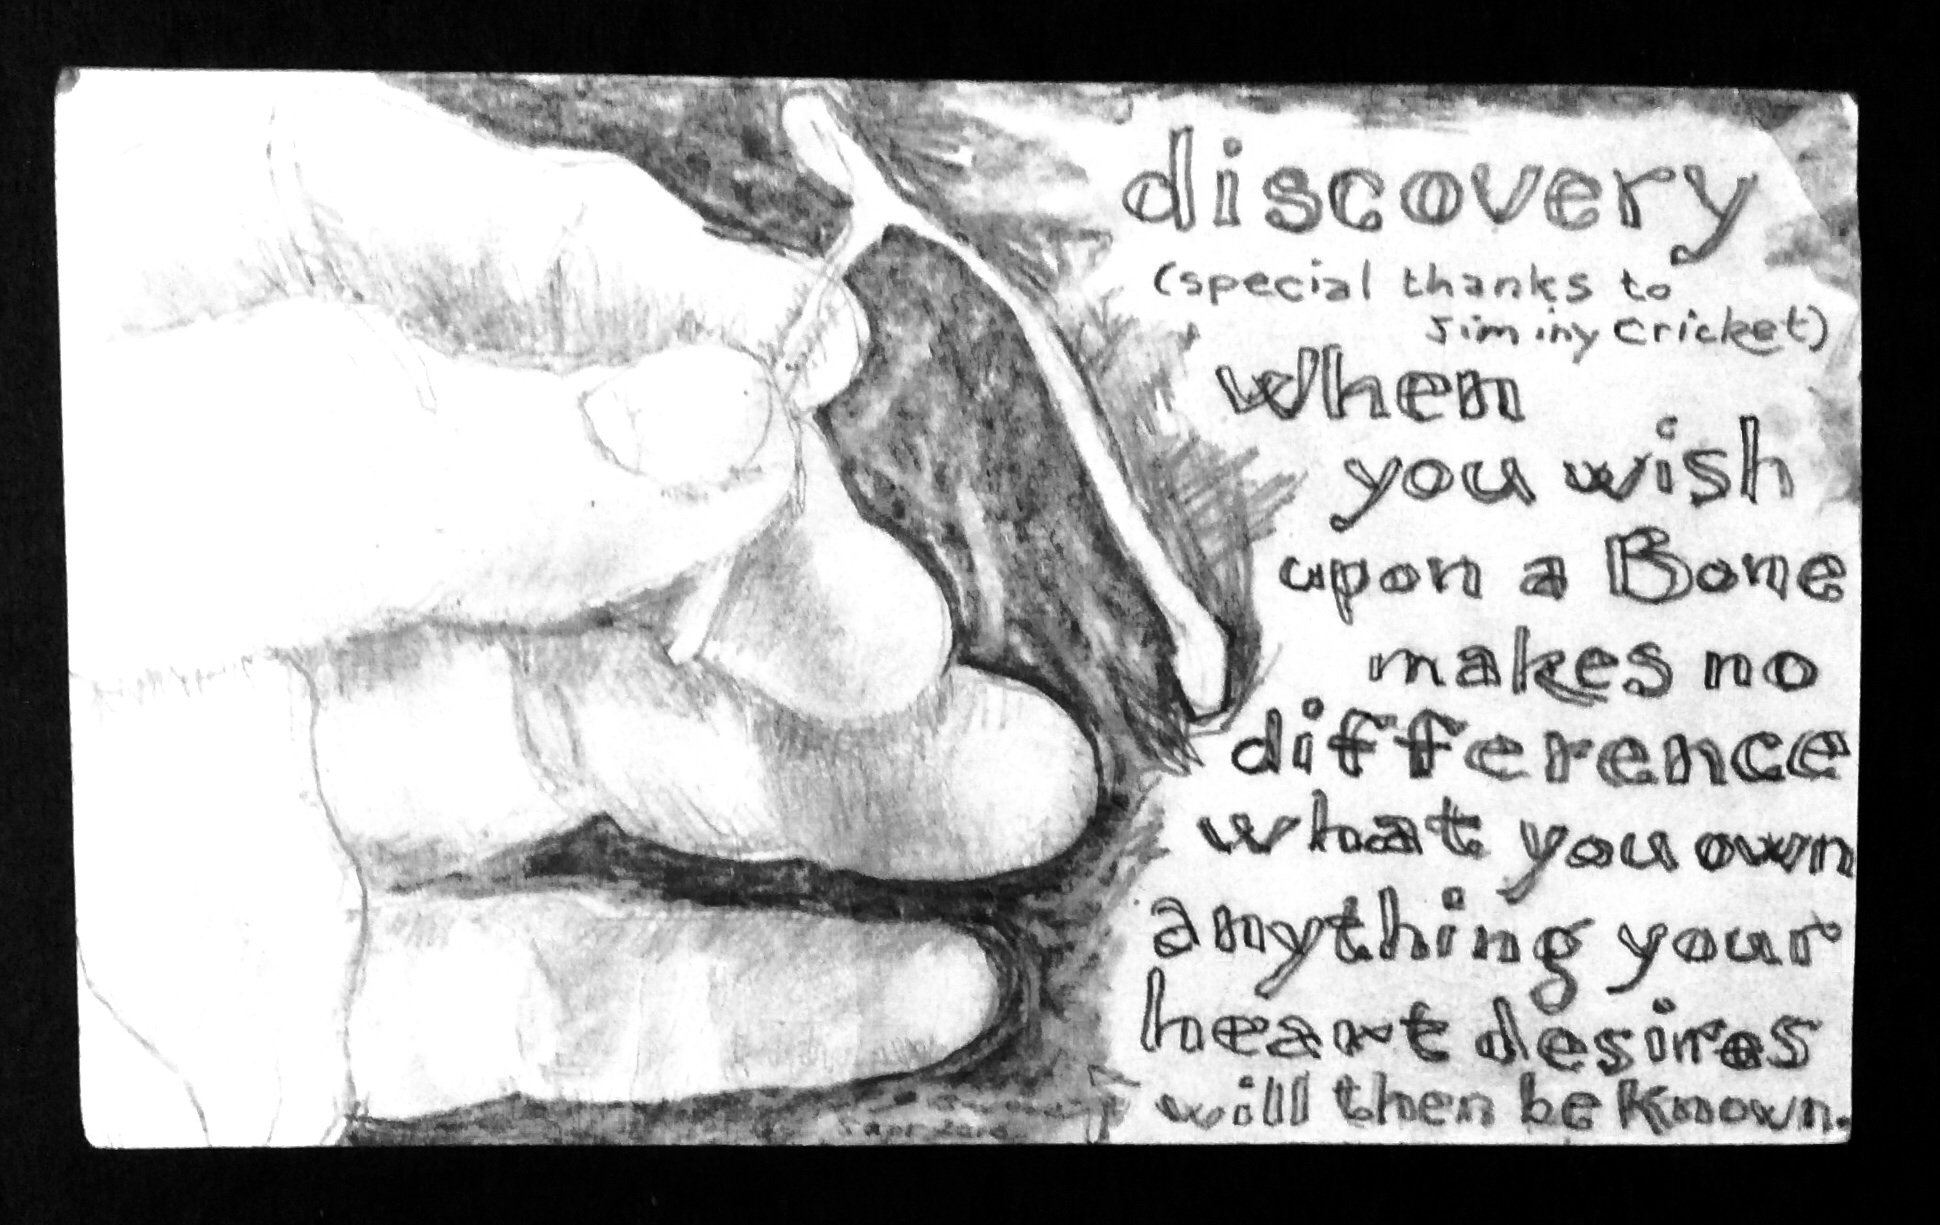 discovery
(special thanks to
Jiminy Cricket)
when
you wish
upon a Bone
makes no
difference
what you own
anything your
heart desires
will then be Known.